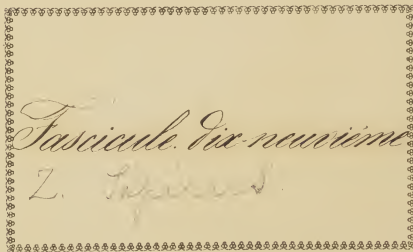 Fascicule. dix-neuvième
2.